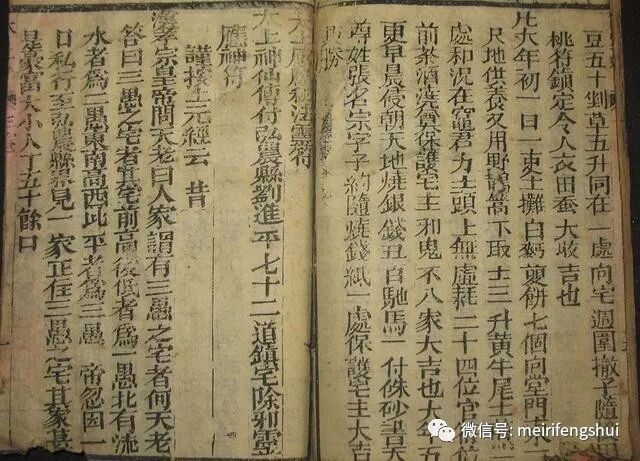 豆五十剉草五升同在一處向宅週圍撒子隨
桃符鎮定令人衣田蚕大收吉也
凡大年初一日一束土攤白麪䭔餅七個向堂門
尺地供養又用野鵲窩下取土三升黃牛尾土
處和況在竈君力士頭上無虛耗二十四位官
前茶酒澆奠保護宅主邪鬼不入家大吉也
更早晨侵朝天地燒銀錢丑白馳馬一付硃砂書
尊姓張名宗字子約隨燒錢紙一處保護宅主大吉
勝
太上鎮宅秘法靈符
太上神仙傳付弘農縣劉進平七十二道鎮宅除邪靈
應神符
謹按上元經云昔
漢孝宗皇帝問天老曰人家謂有三愚之宅者何天老
答曰三愚之宅者其宅前高後低者爲一愚北有流
水者爲二愚東南高西北平者爲三愚帝忽因一
日私行至弘農縣界見一家正住三愚之宅其家甚
是豪富大小八丁五十餘口
微信号: meirifengshui